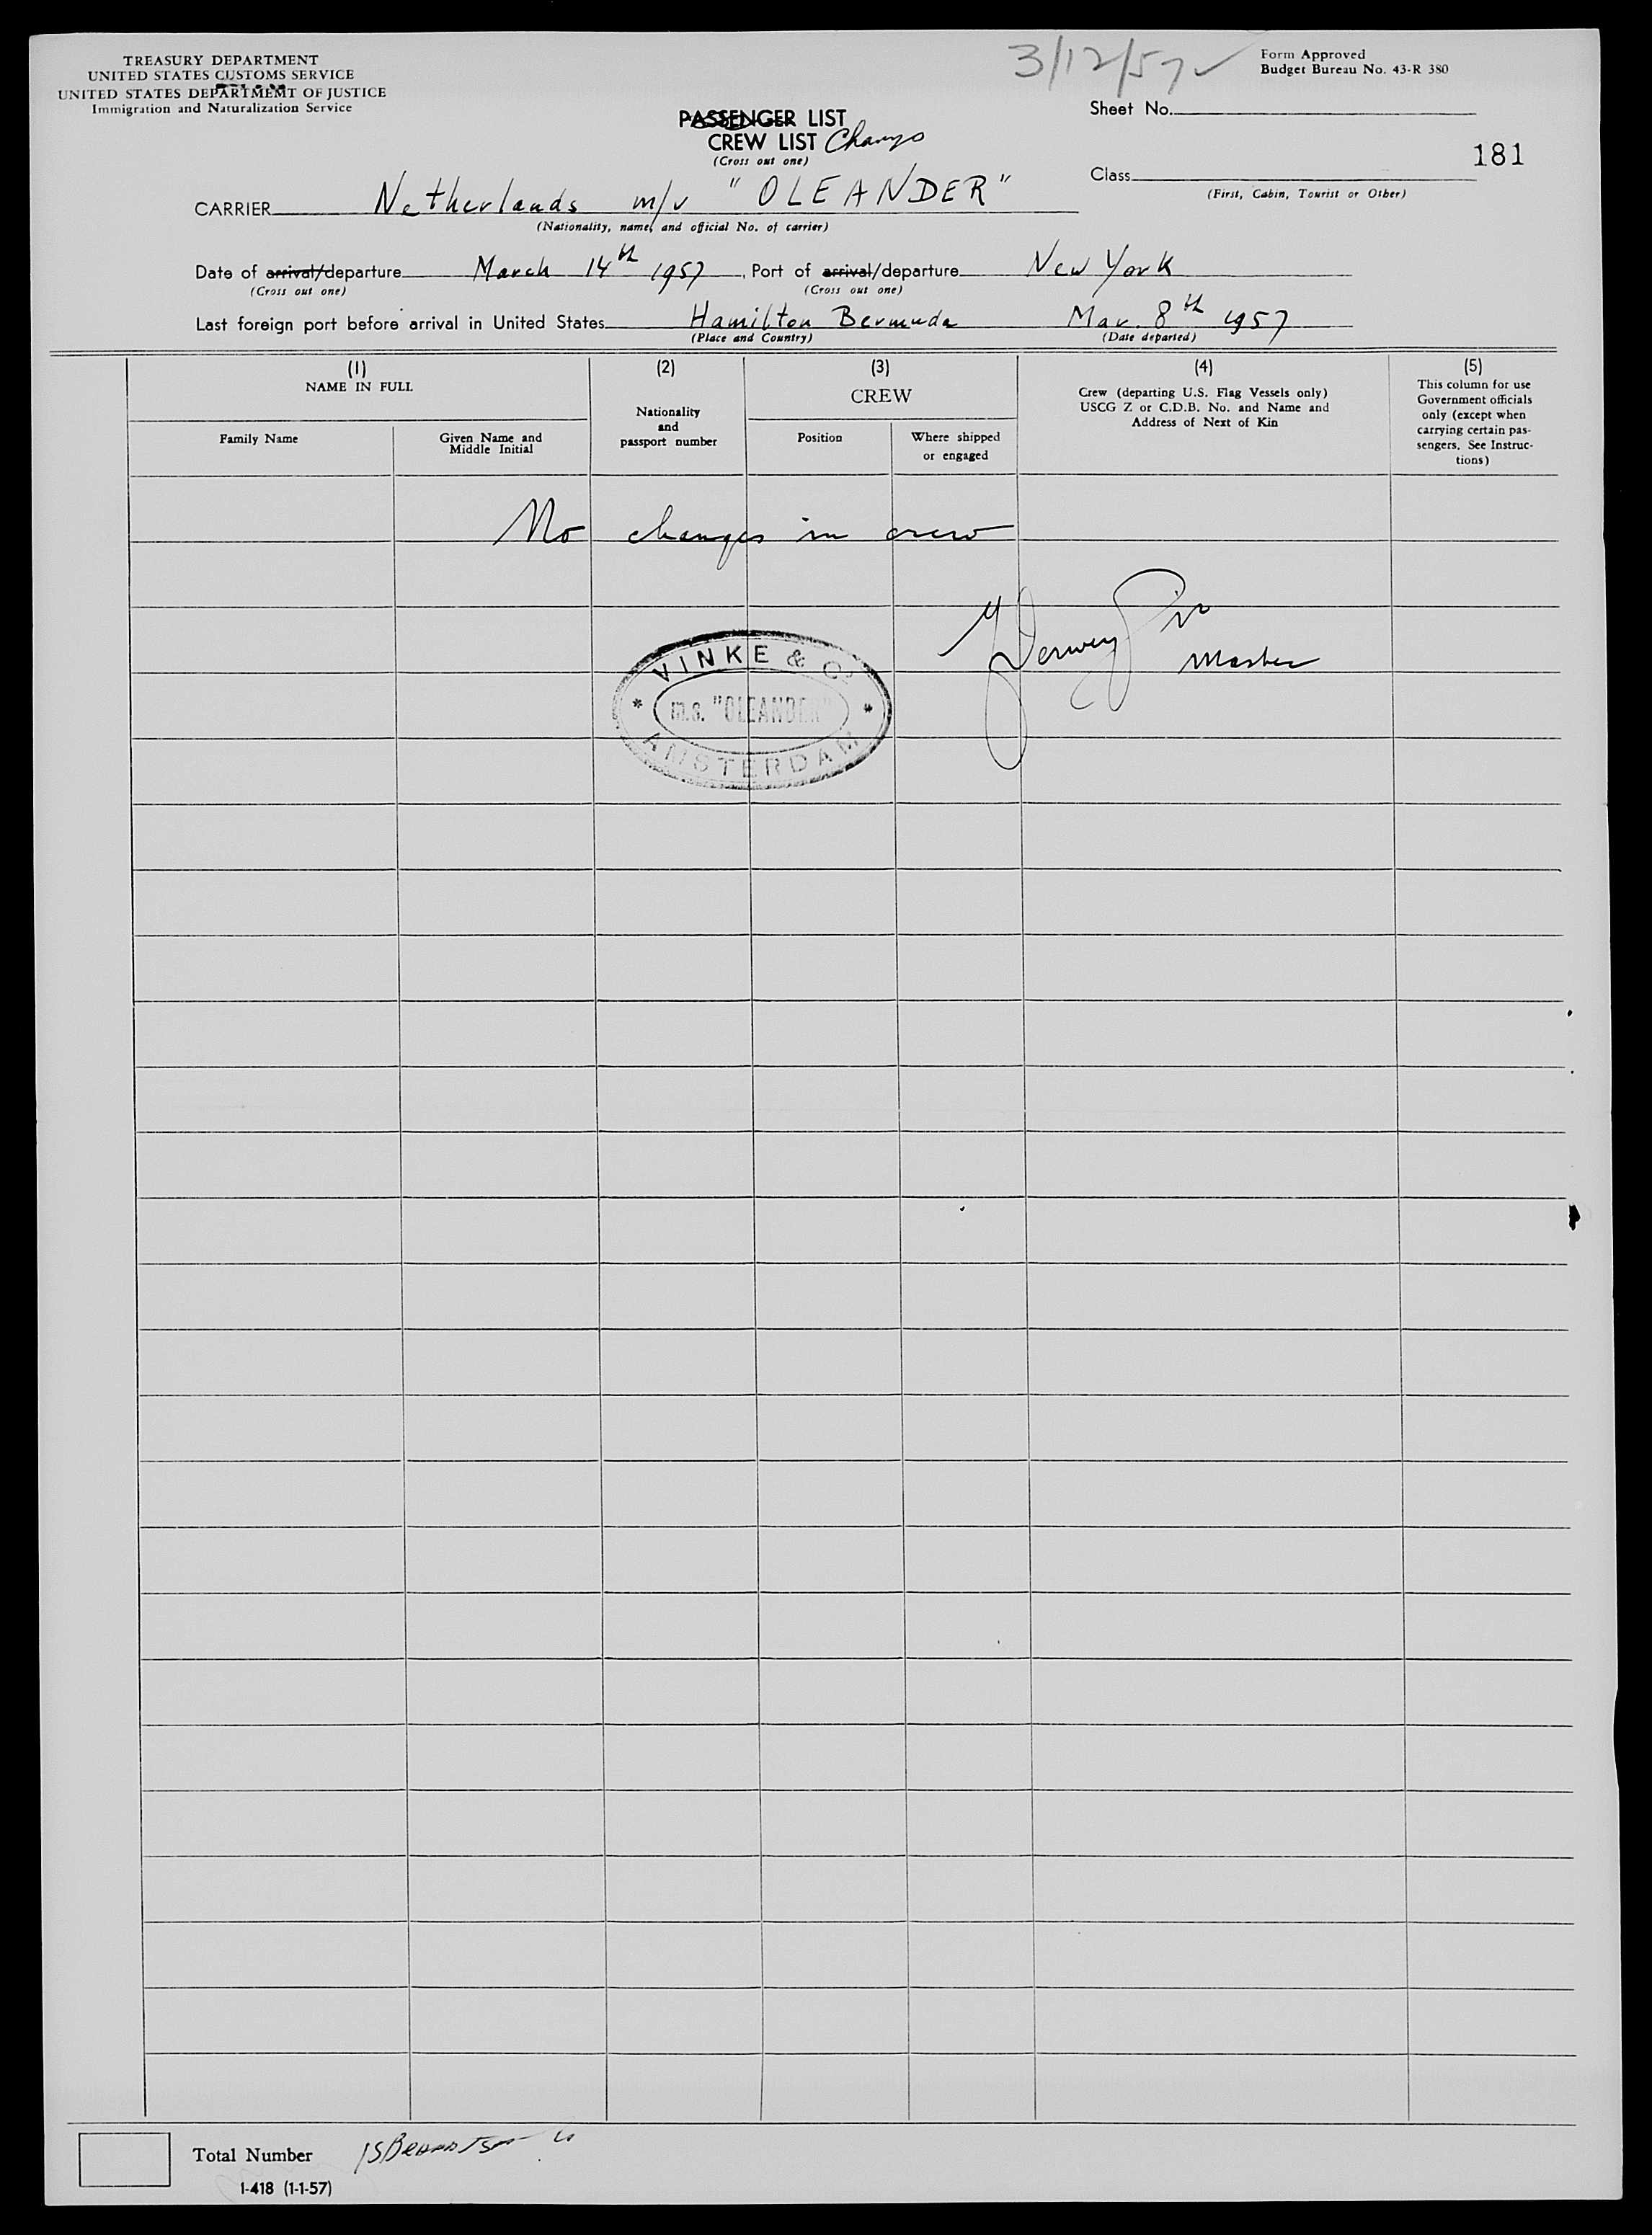 TREASURY DEPARTMENT
UNITED STATES CUSTOMS SERVICE
UNITED STATES DEPARTMEMT OF JUSTICE
Immigration and Naturalization Service
3/12/57
Form Approved
Budget Bureau No. 43-R 380
Sheet No.
PASSENGER LIST
CREW LIST Change
(Cross out one)
181
Class
(First, Cabin, Tourist or Other)
CARRIER Netherlands m/v "OLEANDER"
(Nationality, name, and official No. of carrier)
Date of arrival/departure March 14th 1957, Port of arrival/departure New York
(Cross out one) (Cross out one)
Last foreign port before arrival in United States Hamilton Bermuda Mar. 8th 1957
(Place and Country) (Date departed)
(1) (2) (3) (4) (5)
NAME IN FULL
Family Name
Given Name and
Middle Initial
Nationality
and
passport number
CREW
Position
Where shipped
or engaged
Crew (departing U.S. Flag Vessels only)
USCG Z or C.D.B. No. and Name and
Address of Next of Kin
This column for use
Government officials
only (except when
carrying certain pas-
sengers. See Instruc-
tions)
No changes in crew
Master
VINKE & Co
m.s. "OLEANDER"
AMSTERDAM
Total Number
I-418 (1-1-57)